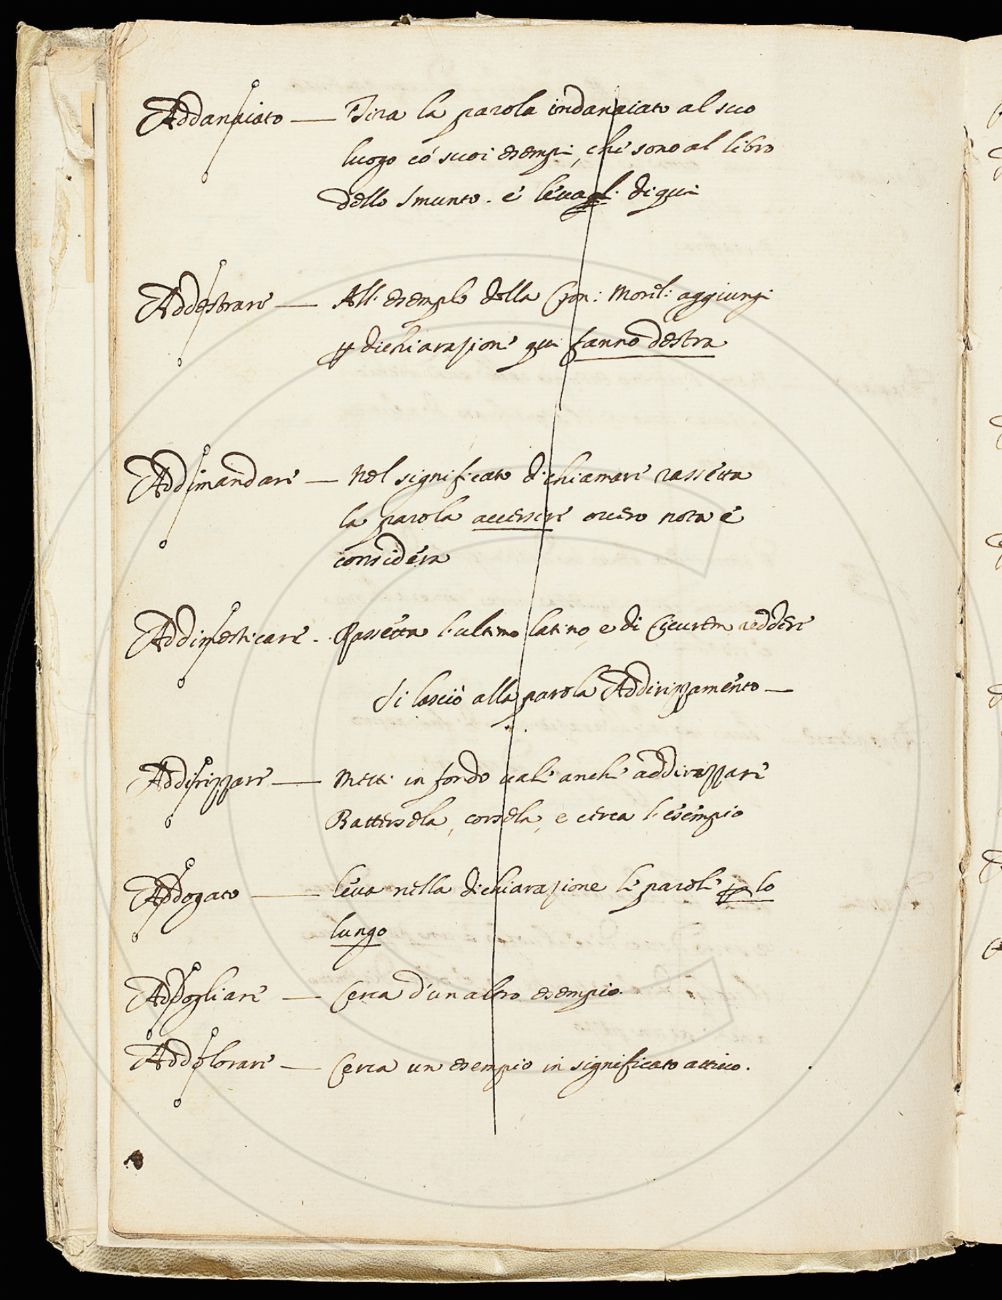 Addanaiato — Tira la parola indanaiato al suo
luogo co' suoi esempi, che sono al libro
dello Smunto. e levagl. di qui
Addestrare — All. esemplo della Cron: Morel: aggiungi
dichiarazione qui fanno destra
Addimandare — Nel significato di chiamare rassetta
la parola accersire overo nota e
considera
Addimesticare - Rassetta l'ultimo latino, e di Cicurem reddere
Si lasciò alla parola Addirizzamento —
Addirizzare — Metti in fondo vale anche addirizzare
Battersela, corsela, e cerca l'esempio
Addogato — leva nella dichiarazione le parole per lo
lungo
Addogliare — Cerca d'un altro esempio.
Addolorare — Cerca un esempio in significato attivo.